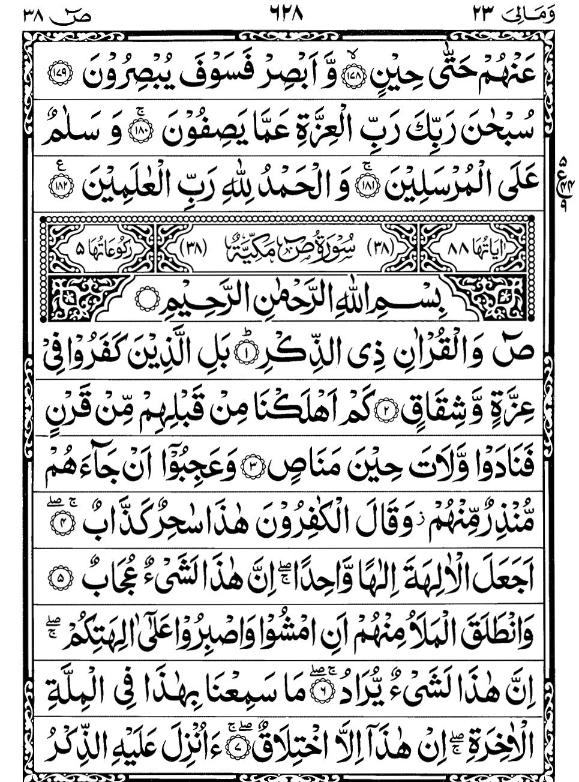 وَمَالِیَ ٢٣ ٦٢٨ صٓ ٣٨
عَنۡهُمۡ حَتّٰی حِیۡنٍ ۙ﴿۱۷۸﴾ وَّ اَبۡصِرۡ فَسَوۡفَ یُبۡصِرُوۡنَ ﴿۱۷۹﴾
سُبۡحٰنَ رَبِّکَ رَبِّ الۡعِزَّةِ عَمَّا یَصِفُوۡنَ ۚ﴿۱۸۰﴾ وَ سَلٰمٌ
عَلَی الۡمُرۡسَلِیۡنَ ۚ﴿۱۸۱﴾ وَ الۡحَمۡدُ لِلّٰهِ رَبِّ الۡعٰلَمِیۡنَ ﴿۱۸۲﴾ ع
۵ ع ۴۴ ۹
اٰیَاتُهَا ٨٨ (٣٨) سُوۡرَةُ صٓ مَكِّيَّةٌ (٣٨) رُكُوۡعَاتُهَا ۵
بِسۡمِ اللهِ الرَّحۡمٰنِ الرَّحِیۡمِ
صٓ وَ الۡقُرۡاٰنِ ذِی الذِّکۡرِ ؕ﴿۱﴾ بَلِ الَّذِیۡنَ کَفَرُوۡا فِیۡ
عِزَّةٍ وَّ شِقَاقٍ ﴿۲﴾ کَمۡ اَهۡلَکۡنَا مِنۡ قَبۡلِهِمۡ مِّنۡ قَرۡنٍ
فَنَادَوۡا وَّ لَاتَ حِیۡنَ مَنَاصٍ ﴿۳﴾ وَ عَجِبُوۡۤا اَنۡ جَآءَهُمۡ
مُّنۡذِرٌ مِّنۡهُمۡ ۫ وَ قَالَ الۡکٰفِرُوۡنَ هٰذَا سٰحِرٌ کَذَّابٌ ۖۚ﴿۴﴾
اَجَعَلَ الۡاٰلِهَةَ اِلٰهًا وَّاحِدًا ۖۚ اِنَّ هٰذَا لَشَیۡءٌ عُجَابٌ ﴿۵﴾
وَ انۡطَلَقَ الۡمَلَاُ مِنۡهُمۡ اَنِ امۡشُوۡا وَ اصۡبِرُوۡا عَلٰۤی اٰلِهَتِکُمۡ ۖۚ
اِنَّ هٰذَا لَشَیۡءٌ یُّرَادُ ۖۚ﴿۶﴾ مَا سَمِعۡنَا بِهٰذَا فِی الۡمِلَّةِ
الۡاٰخِرَةِ ۖۚ اِنۡ هٰذَاۤ اِلَّا اخۡتِلَاقٌ ۖۚ﴿۷﴾ ءَاُنۡزِلَ عَلَیۡهِ الذِّکۡرُ